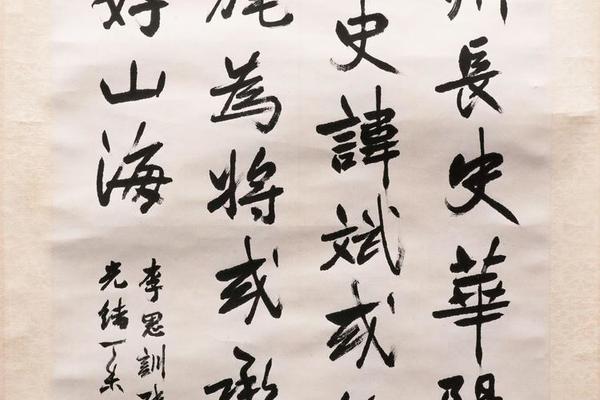 州長史華陽
史諱斌或
旄為將或承
好山海
李思訓碑
光緒丁未